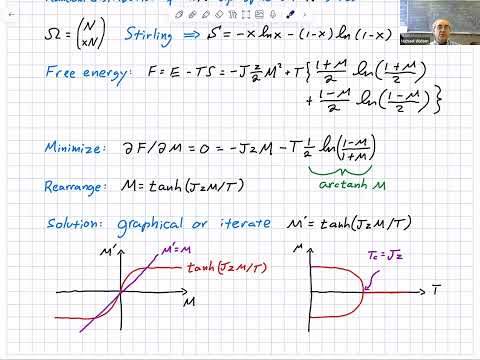 Ω = (N xN) Stirling ⇒ S = -x ln x - (1-x) ln (1-x)
Free energy: F = E - TS = -J z/2 M² + T { 1+M/2 ln(1+M/2)
+ 1-M/2 ln(1-M/2) }
Minimize: ∂F/∂M = 0 = -JzM - T 1/2 ln(1-M/1+M)
arctanh M
Rearrange: M = tanh(JzM/T)
Solution: graphical or iterate M' = tanh(JzM/T)
M' M'=M
tanh(JzM/T)
M
M Tc = Jz
T